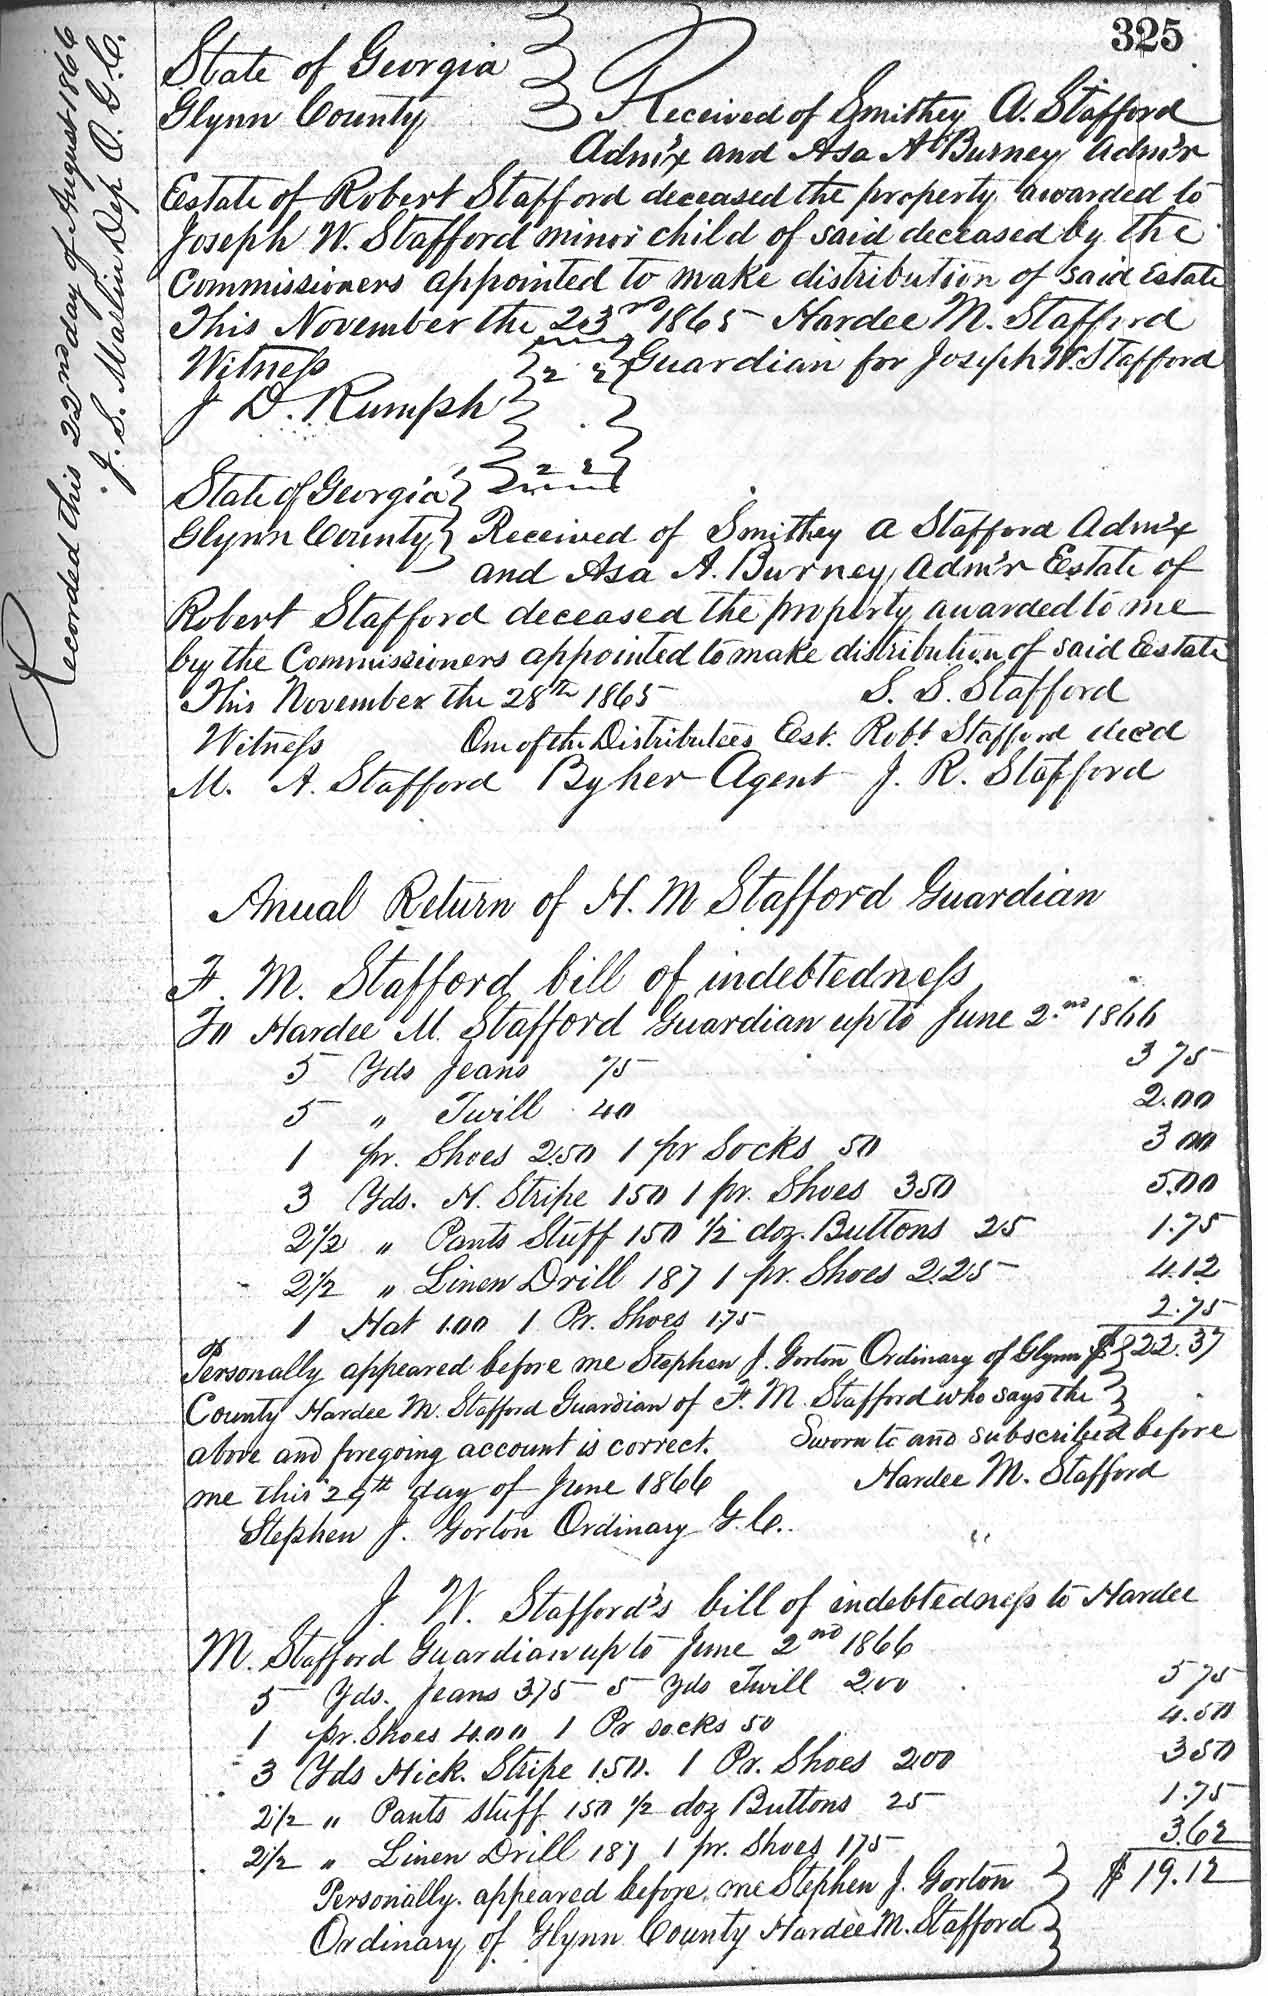 325
Recorded this 22nd day of August 1866
J. S. Marlin Dep O. G. C.
State of Georgia
Glynn County Received of Smithey A. Stafford
Adm'x and Asa A. Burney Adm'r
Estate of Robert Stafford deceased the property awarded to
Joseph W. Stafford minor child of said deceased by the
Commissioners appointed to make distribution of said Estate
This November the 23rd 1865 Hardee M. Stafford
Witness Guardian for Joseph W. Stafford
J D. Rumph
State of Georgia
Glynn County Received of Smithey A Stafford Adm'x
and Asa A. Burney, Adm'r Estate of
Robert Stafford deceased the property awarded to me
by the Commissioners appointed to make distribution of said Estate
This November the 28th 1865 S. S. Stafford
Witness One of the Distributees Est. Robt Stafford dec'd
M. A. Stafford By her Agent J. R. Stafford
Anual Return of H. M Stafford Guardian
F. M. Stafford bill of indebtedness
To Hardee M. Stafford Guardian up to June 2nd 1866
5 Yds Jeans 75 3 75
5 " Twill 40 2.00
1 pr. Shoes 2.50 1 pr Socks 50 3 00
3 Yds. H. Stripe 150 1 pr. Shoes 350 5.00
2 1/2 " Pants Stuff 150 1/2 doz. Buttons 25 1.75
2 1/2 " Linen Drill 187 1 pr. Shoes 2.25 4.12
1 Hat 1.00 1 Pr. Shoes 1.75 2.75
Personally appeared before me Stephen J. Gorton Ordinary of Glynn $22.37
County Hardee M. Stafford Guardian of F. M. Stafford who says the
above and foregoing account is correct. Sworn to and subscribed before
me this 29th day of June 1866 Hardee M. Stafford
Stephen J. Gorton Ordinary G. C.
J. W. Stafford's bill of indebtedness to Hardee
M. Stafford Guardian up to June 2nd 1866
5 Yds. Jeans 3.75 5 Yds Twill 2.00 5 75
1 pr. Shoes 4.00 1 Pr socks 50 4.50
3 Yds Hick. Stripe 1.50. 1 Pr. Shoes 2.00 3 50
2 1/2 " Pants stuff 150 1/2 doz Buttons 25 1.75
2 1/2 " Linen Drill 187 1 pr. Shoes 175 3.62
Personally appeared before me Stephen J. Gorton $19.12
Ordinary of Glynn County Hardee M. Stafford